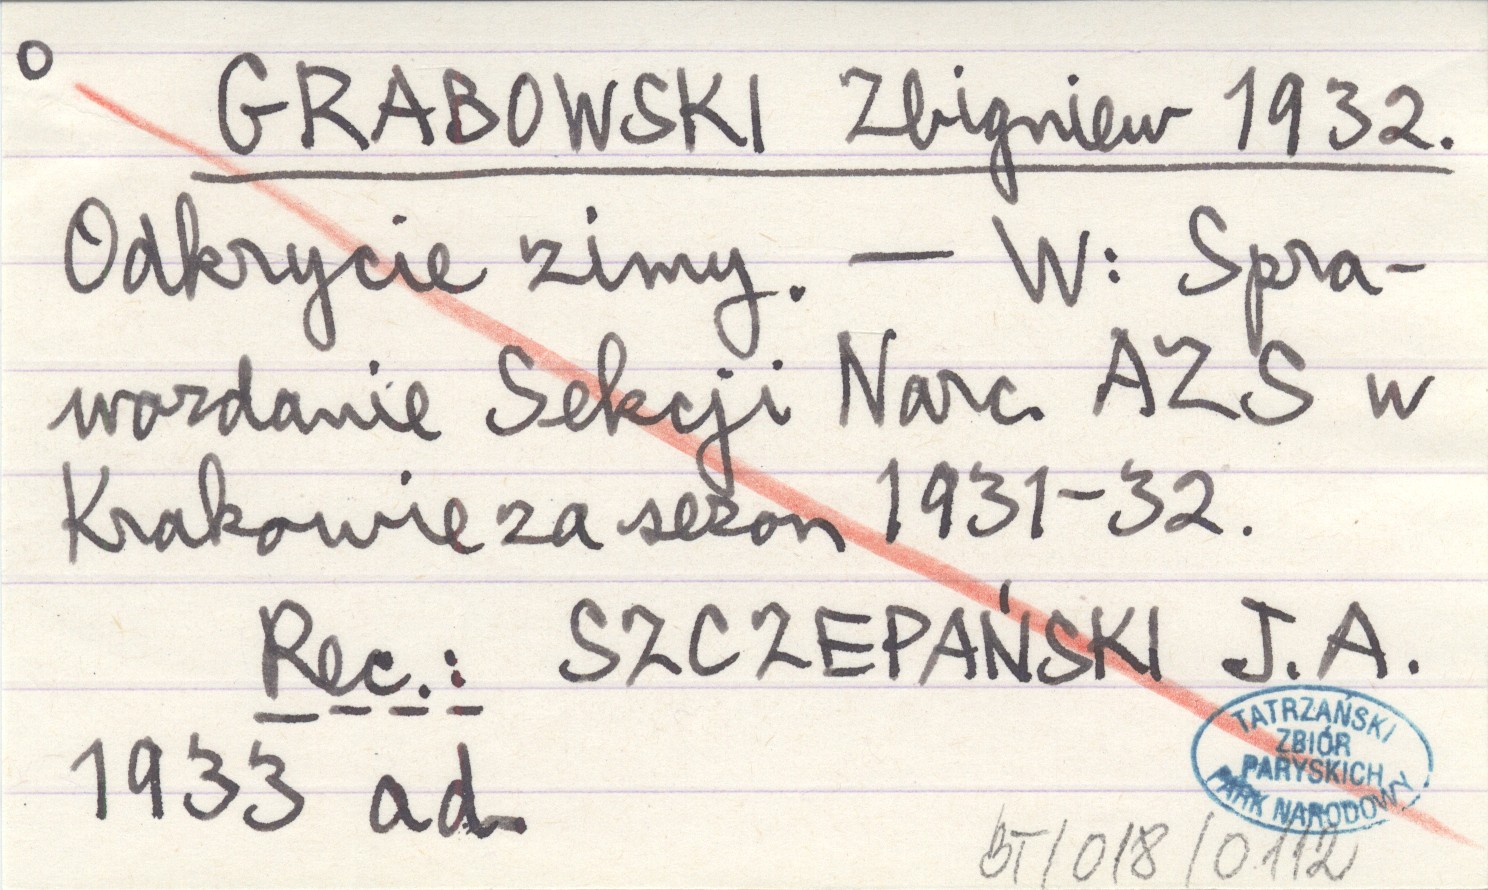 o
GRABOWSKI Zbigniew 1932.
Odkrycie zimy. — W: Spra-
wozdanie Sekcji Narc. AZS w
Krakowie za sezon 1931-32.
Rec.: SZCZEPAŃSKI J.A.
1933 ad.
TATRZAŃSKI
ZBIÓR
PARYSKICH
PARK NARODOWY
BT/018/0112